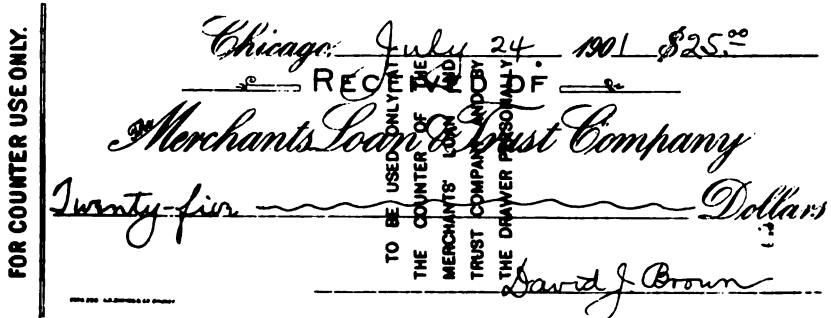 FOR COUNTER USE ONLY.
Chicago, July 24 1901 $25.00
RECEIVED OF
The Merchants Loan & Trust Company
Twenty-five Dollars
TO BE USED ONLY AT
THE COUNTER OF THE
MERCHANTS' LOAN AND
TRUST COMPANY AND BY
THE DRAWER PERSONALLY
David J Brown